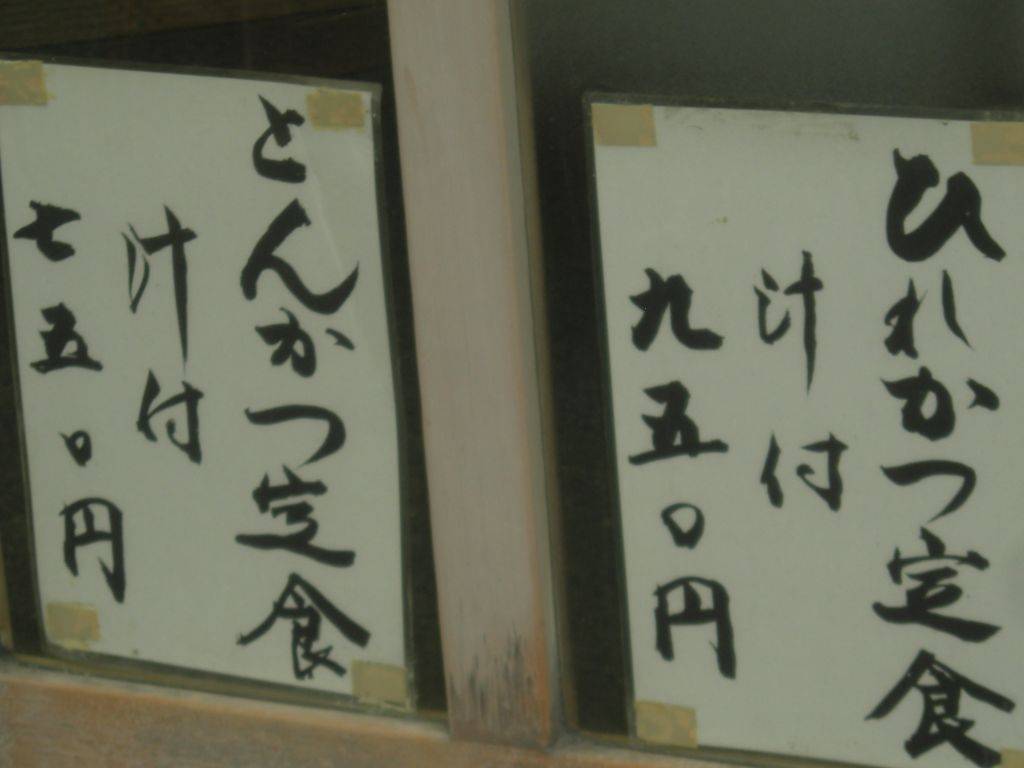 ひれかつ定食
汁付
九五〇円
とんかつ定食
汁付
七五〇円